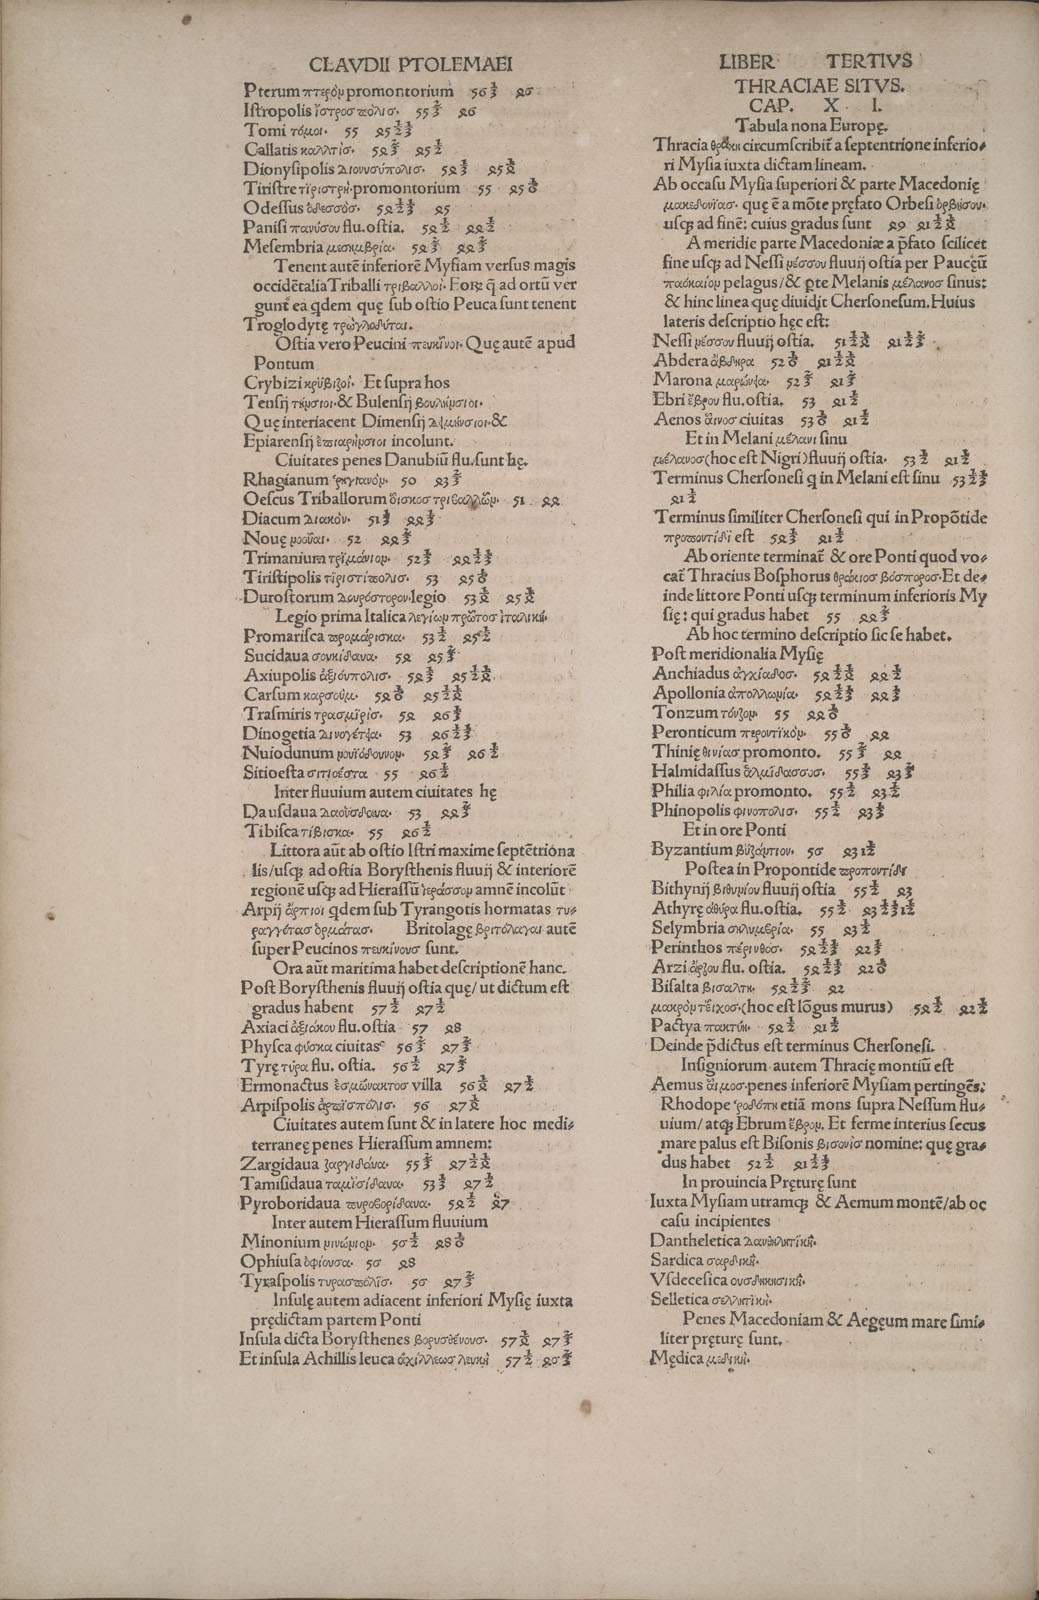 CLAVDII PTOLEMAEI
Pterum πτερόμ promontorium 56
Iſtropolis ἴστροσ πολισ. 55 ⅔ 46
Tomi τόμοι. 55 45 ½
Callatis καλλτίσ. 54 ⅔ 45 ½
Dionyſipolis διονυσύπολισ. 54 45
Tiriſtre τϊριστρή. promontorium 55 45
Odeſſus ὀδεσσὸσ. 54 45
Paniſi πανύσου flu. oſtia. 54 ½ 44 ½
Meſembria μεσημβρία. 54 ⅔ 44 ⅔
Tenent autē inferiorē Myſiam verſus magis
occidētalia Triballi τριβαλλοί. Eoꝝ q̄ ad ortū ver
gunt ea qdem quę ſub oſtio Peuca ſunt tenent
Troglodytę τρωγλοδύται.
Oſtia vero Peucini πευκῖνοι. Quę autē apud
Pontum
Crybizi κρϋβιζοί. Et ſupra hos
Tenſij τήνσιοι. & Bulenſij βουλήνσιοι.
Quę interiacent Dimenſij &
Epiarenſij incolunt.
Ciuitates penes Danubiū flu. ſunt hę.
Rhagianum ῥηγιανόμ. 50 43 ⅔
Oeſcus Triballorum ὄισκοσ τριβαλλῶμ. 51 44
Diacum διακὸν. 51 44
Nouę νοοῦαι. 52 44
Trimanium τρϊμάνιομ. 52 44
Tiriſtipolis τϊριστίπολισ. 53 45
Duroſtorum δουρόστορον. legio 53 45
Legio prima Italica λεγίωμ πρῶτοσ ἰταλική.
Promariſca προμάρισκα. 53 ½ 45 ½
Sucidaua σουκίδαυα. 54 45
Axiupolis ἀξιόυπολισ. 54 45
Carſum καρσούμ. 54 45
Traſmiris τρασμϊρίσ. 54 46
Dinogetia δινογέτϊα. 53 46
Nuiodunum νουϊόδουνομ. 54 46 ½
Sitioeſta σιτιοέστα 55 46 ½
Inter fluuium autem ciuitates hę
Dauſdaua δαούσδαυα. 53 44
Tibiſca τίβισκα. 55 46 ½
Littora aūt ab oſtio Iſtri maxime ſeptētriōna
lis/uſqꝫ ad oſtia Boryſthenis fluuij & interiorē
regionē uſqꝫ ad Hieraſſū ἱεράσσομ amnē incolūt
Arpij ἄρπιοι qdem ſub Tyrangotis hormatas τυ⸗
ραγγέτασ ὁρμάτασ. Britolagę βριτόλαγαι autē
ſuper Peucinos πευκίνουσ ſunt.
Ora aūt maritima habet deſcriptionē hanc.
Poſt Boryſthenis fluuij oſtia quę/ ut dictum eſt
gradus habent 57 ½ 47 ½
Axiaci ἀξιάκου flu. oſtia 57 48
Phyſca φύσκα ciuitas 56 ⅔ 47 ⅔
Tyrę τύρα flu. oſtia. 56 47
Ermonactus ἑσμώνακτοσ villa 56 47 ½
Arpiſpolis ἀρπϊσπόλισ. 56 47
Ciuitates autem ſunt & in latere hoc medi⸗
terraneę penes Hieraſſum amnem:
Zargidaua ζαργιδάυα. 55 47
Tamiſidaua ταμϊσίδαυα. 53 47 ½
Pyroboridaua πυροβορίδαυα. 54 47
Inter autem Hieraſſum fluuium
Minonium νινώνιομ. 56 48
Ophiuſa ὀφίουσα. 56 48
Tyraſpolis τυρασπόλϊσ. 56 47 ⅔
Inſulę autem adiacent inferiori Myſię iuxta
prędictam partem Ponti
Inſula dicta Boryſthenes βορυσθένουσ. 57 47
Et inſula Achillis leuca ἀχίλλεωσ λευκὴ 57 ½ 46
LIBER TERTIVS
THRACIAE SITVS.
CAP. X I.
Tabula nona Europę.
Thracia θρᾴκη circumſcribit̄ a ſeptentrione inferio⸗
ri Myſia iuxta dictam lineam.
Ab occaſu Myſia ſuperiori & parte Macedonię
μακεδονίασ. quę ē a mōte pręfato Orbeſi ὀρβήσου.
uſqꝫ ad finē: cuius gradus ſunt 49 41
A meridie parte Macedoniæ a p̄fato ſcilicet
fine uſqꝫ ad Neſſi νέσσου fluuij oſtia per Paucęū
pelagus/& ꝑte Melanis μέλανοσ ſinus:
& hinc linea quę diuidit Cherſoneſum. Huius
lateris deſcriptio hęc eſt:
Neſſi νέσσου fluuij oſtia. 51 41
Abdera ἄβδηρα 52 41
Marona μαρώνϊα. 52 ⅔ 41 ⅔
Ebri ἔβρου flu. oſtia. 53 41 ½
Aenos ἄινοσ ciuitas 53 41 ½
Et in Melani μέλανι ſinu
μέλανοσ (hoc eſt Nigri) fluuij oſtia. 53 ½ 41 ½
Terminus Cherſoneſi q in Melani eſt ſinu 53
41 ½
Terminus ſimiliter Cherſoneſi qui in Propōtide
προποντίδϊ eſt 54 41 ½
Ab oriente terminat̄ & ore Ponti quod vo⸗
cat̄ Thracius Boſphorus θράκιοσ βόσπορος. Et de⸗
inde littore Ponti uſqꝫ terminum inferioris My
ſię: qui gradus habet 55 44 ⅔
Ab hoc termino deſcriptio ſic ſe habet.
Poſt meridionalia Myſię
Anchiadus ἀγχίαδοσ. 54 44 ½
Apollonia ἀπολλωνία. 54 44
Tonzum τόνζομ. 55 44
Peronticum περοντϊκὸμ. 55 44
Thinię θινίασ promonto. 55 ⅔ 44
Halmidaſſus ἁλμϊδασσοσ. 55 43
Philia φιλία promonto. 55 ½ 43 ½
Phinopolis φινοπολισ. 55 ½ 43
Et in ore Ponti
Byzantium βϋζάντιον. 56 43
Poſtea in Propontide προποντίδι
Bithynij βιθυνίου fluuij oſtia 55 ½ 43
Athyrę ἀθύρα flu. oſtia. 55 ½ 42
Selymbria σηλυμβρία. 55 43
Perinthos πέρινθοσ. 54 42
Arzi ἄρζου flu. oſtia. 54 42
Biſalta βισαλτη. 54 42
μακρὸμ τεῖχοσ. (hoc eſt lōgus murus) 54 ½ 42 ½
Pactya πακτύη. 54 ½ 41 ½
Deinde p̄dictus eſt terminus Cherſoneſi.
Inſigniorum autem Thracię montiū eſt
Aemus ἅιμοσ. penes inferiorē Myſiam pertingēs:
Rhodope ῥοδόπη etiā mons ſupra Neſſum flu⸗
uium/ atqꝫ Ebrum ἔβρομ. Et ferme interius ſecus
mare palus eſt Biſonis βισονὶσ nomine: quę gra⸗
dus habet 52 ½ 41
In prouincia Pręturę ſunt
Iuxta Myſiam utramqꝫ & Aemum montē/ab oc
caſu incipientes
Dantheletica δανθηλητϊκή.
Sardica σαρδικὴ.
Vſdeceſica ουσδηκησικὴ.
Selletica σελλητϊκὴ.
Penes Macedoniam & Aegęum mare ſimi⸗
liter pręturę ſunt.
Mędica μεδικὴ.